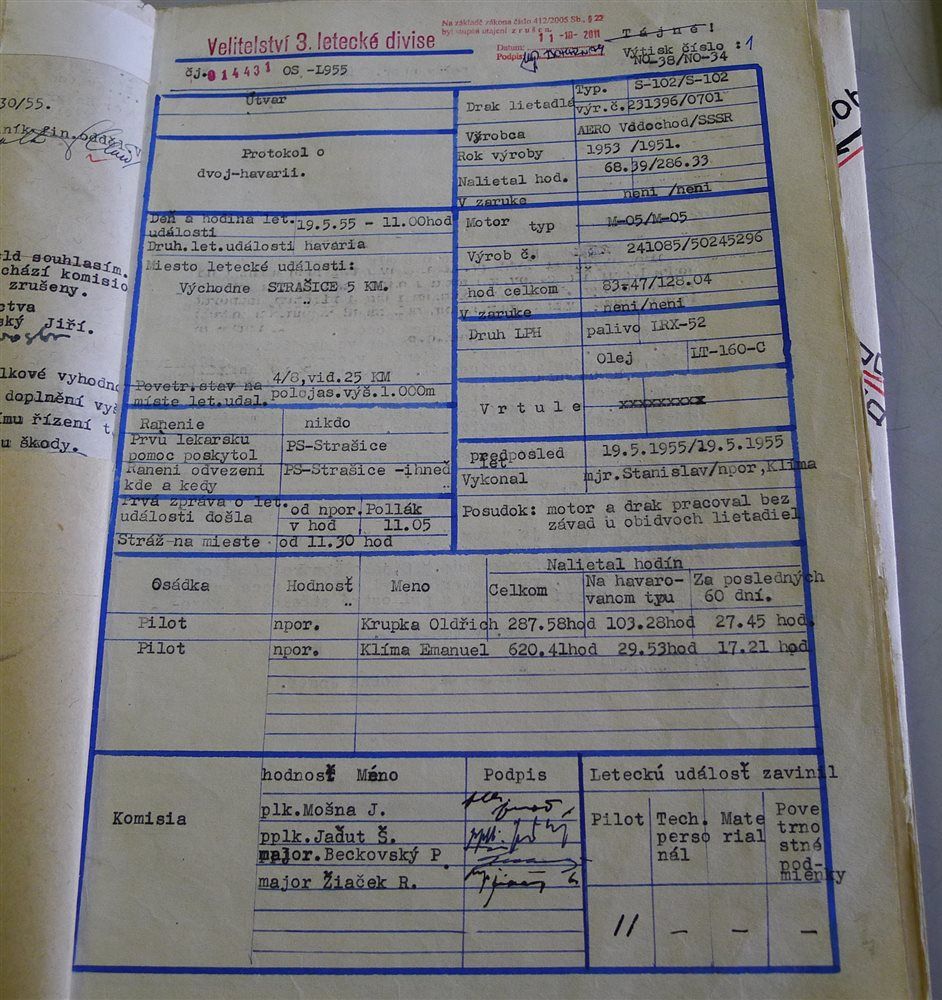 Na základě zákona číslo 412/2005 Sb., § 22
byl stupeň utajení zrušen.
Datum: 11-10-2011
Podpis:
Tájné!
Výtisk číslo :1
NO-38/NO-34
Velitelství 3. letecké divise
čj. 014431 OS -1955
Útvar
Protokol o
dvoj-havarii.
Drak lietadla
Typ. S-102/S-102
výr.č.231396/0701
Výrobca AERO Vodochod/SSSR
Rok výroby 1953 /1951.
Nalietal hod. 68.39/286.33
V zaruke neni /neni
Deň a hodina let.
události 19.5.55 - 11.00hod
Druh.let.události havaria
Miesto letecké události:
Východne STRAŠICE 5 KM.
Povetr.stav na
mieste let.udal.
4/8,vid.25 KM
polojas.výš.1.000m
Motor typ M-05/M-05
Výrob č. 241085/50245296
hod celkom 83.47/128.04
V zaruke neni/neni
Druh LPH palivo LRX-52
Olej LT-160-C
Vrtule xxxxxxxxx
Ranenie nikdo
Prvú lekarsku
pomoc poskytol PS-Strašice
Raneni odvezeni
kde a kedy PS-Strašice -ihneď
predposled
let 19.5.1955/19.5.1955
Vykonal mjr.Stanislav/npor,Klíma
Prvá zpráva o let.
události došla
od npor.Pollák
v hod 11.05
Stráž na mieste od 11.30 hod
Posudok: motor a drak pracoval bez
závad u obidvoch lietadiel
Osádka Hodnosť Meno
Nalietal hodín
Celkom
Na havaro-
vanom typu
Za posledných
60 dní.
Pilot npor. Krupka Oldřich 287.58hod 103.28hod 27.45 hod.
Pilot npor. Klíma Emanuel 620.41hod 29.53hod 17.21 hod
Komisia
hodnosť Méno Podpis
plk.Mošna J.
pplk.Jaďut Š.
major.Beckovský P.
major Žiaček R.
Leteckú událosť zavinil
Pilot
Tech.
perso
nál
Mate
rial
Pove
trno
stné
pod-
mienky
11 – – –
30/55.
ník fin.odděl
ld souhlasím.
chází komisio
zrušeny.
ctva
ský Jiří.
lkové vyhodno
doplnění vyš
mu řízení t.
u škody.